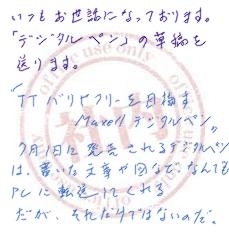 いつもお世話になっております。
「デジタルペン」の草稿を
送ります。
「ITバリヤフリーを目指す
Maxell デジタルペン」
7月1日に発売されるデジタルペン
は、書いた文章や図など、なんでも
PCに転送してくれる
だが、それだけではないのだ。
office use only
社外